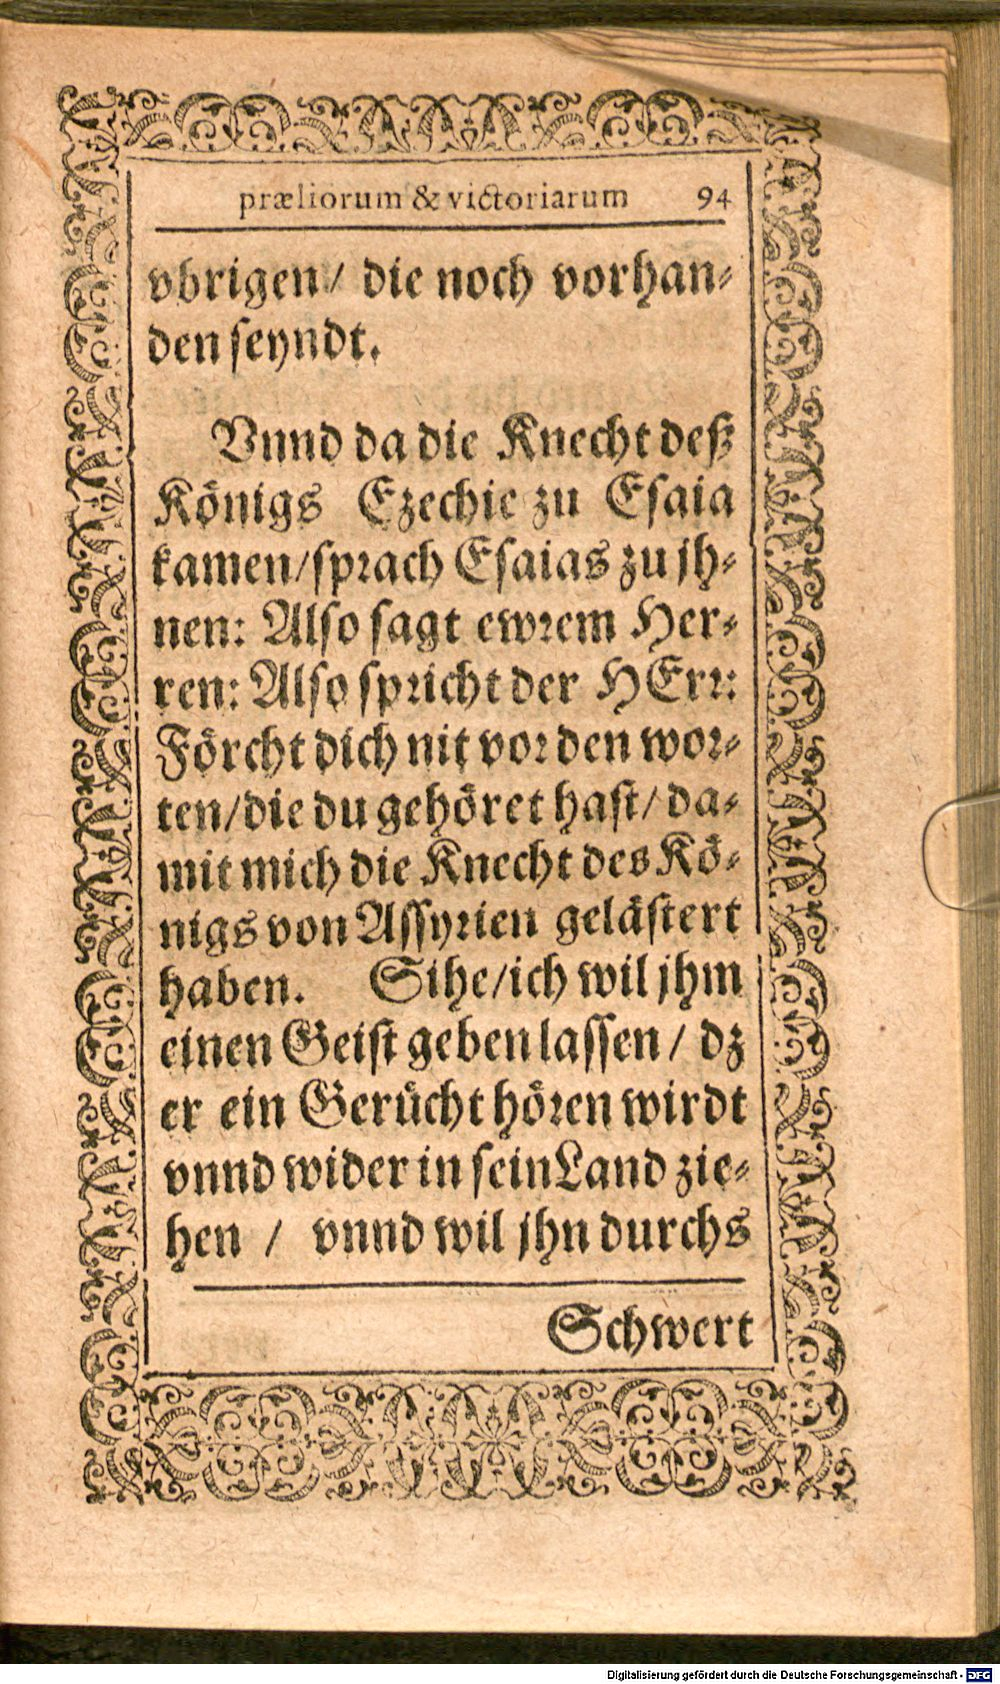 præliorum & victoriarum 94
vbrigen/ die noch vorhan-
den seyndt.
Vnnd da die Knecht deß
Königs Ezechie zu Esaia
kamen/sprach Esaias zu jh-
nen: Also sagt ewrem Her-
ren: Also spricht der HErr:
Förcht dich nit vor den wor-
ten/die du gehöret hast/ da-
mit mich die Knecht des Kö-
nigs von Assyrien gelästert
haben. Sihe/ich wil jhm
einen Geist geben lassen / dz
er ein Gerücht hören wirdt
vnnd wider in sein Land zie-
hen / vnnd wil jhn durchs
Schwert
Digitalisierung gefördert durch die Deutsche Forschungsgemeinschaft - DFG